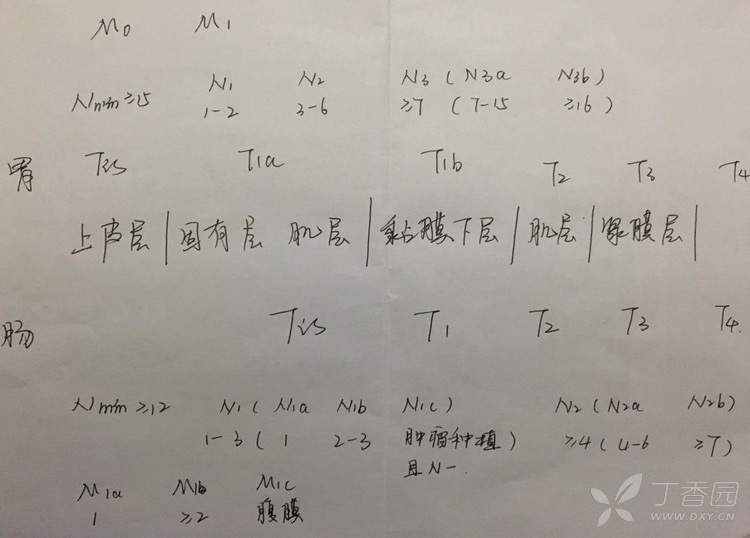 M0 M1
Nmin≥15 N1 N2 N3 ( N3a N3b )
1-2 3-6 ≥7 ( 7-15 ≥16 )
胃 Tis T1a T1b T2 T3 T4
上皮层 | 固有层 肌层 | 黏膜下层 | 肌层 | 浆膜层 |
肠 Tis T1 T2 T3 T4
Nmin≥12 N1 ( N1a N1b N1c ) N2 ( N2a N2b )
1-3 ( 1 2-3 肿瘤种植 ) ≥4 ( 4-6 ≥7 )
且N-.
M1a M1b M1c
1 ≥2 腹膜
丁香园
WWW.DXY.CN